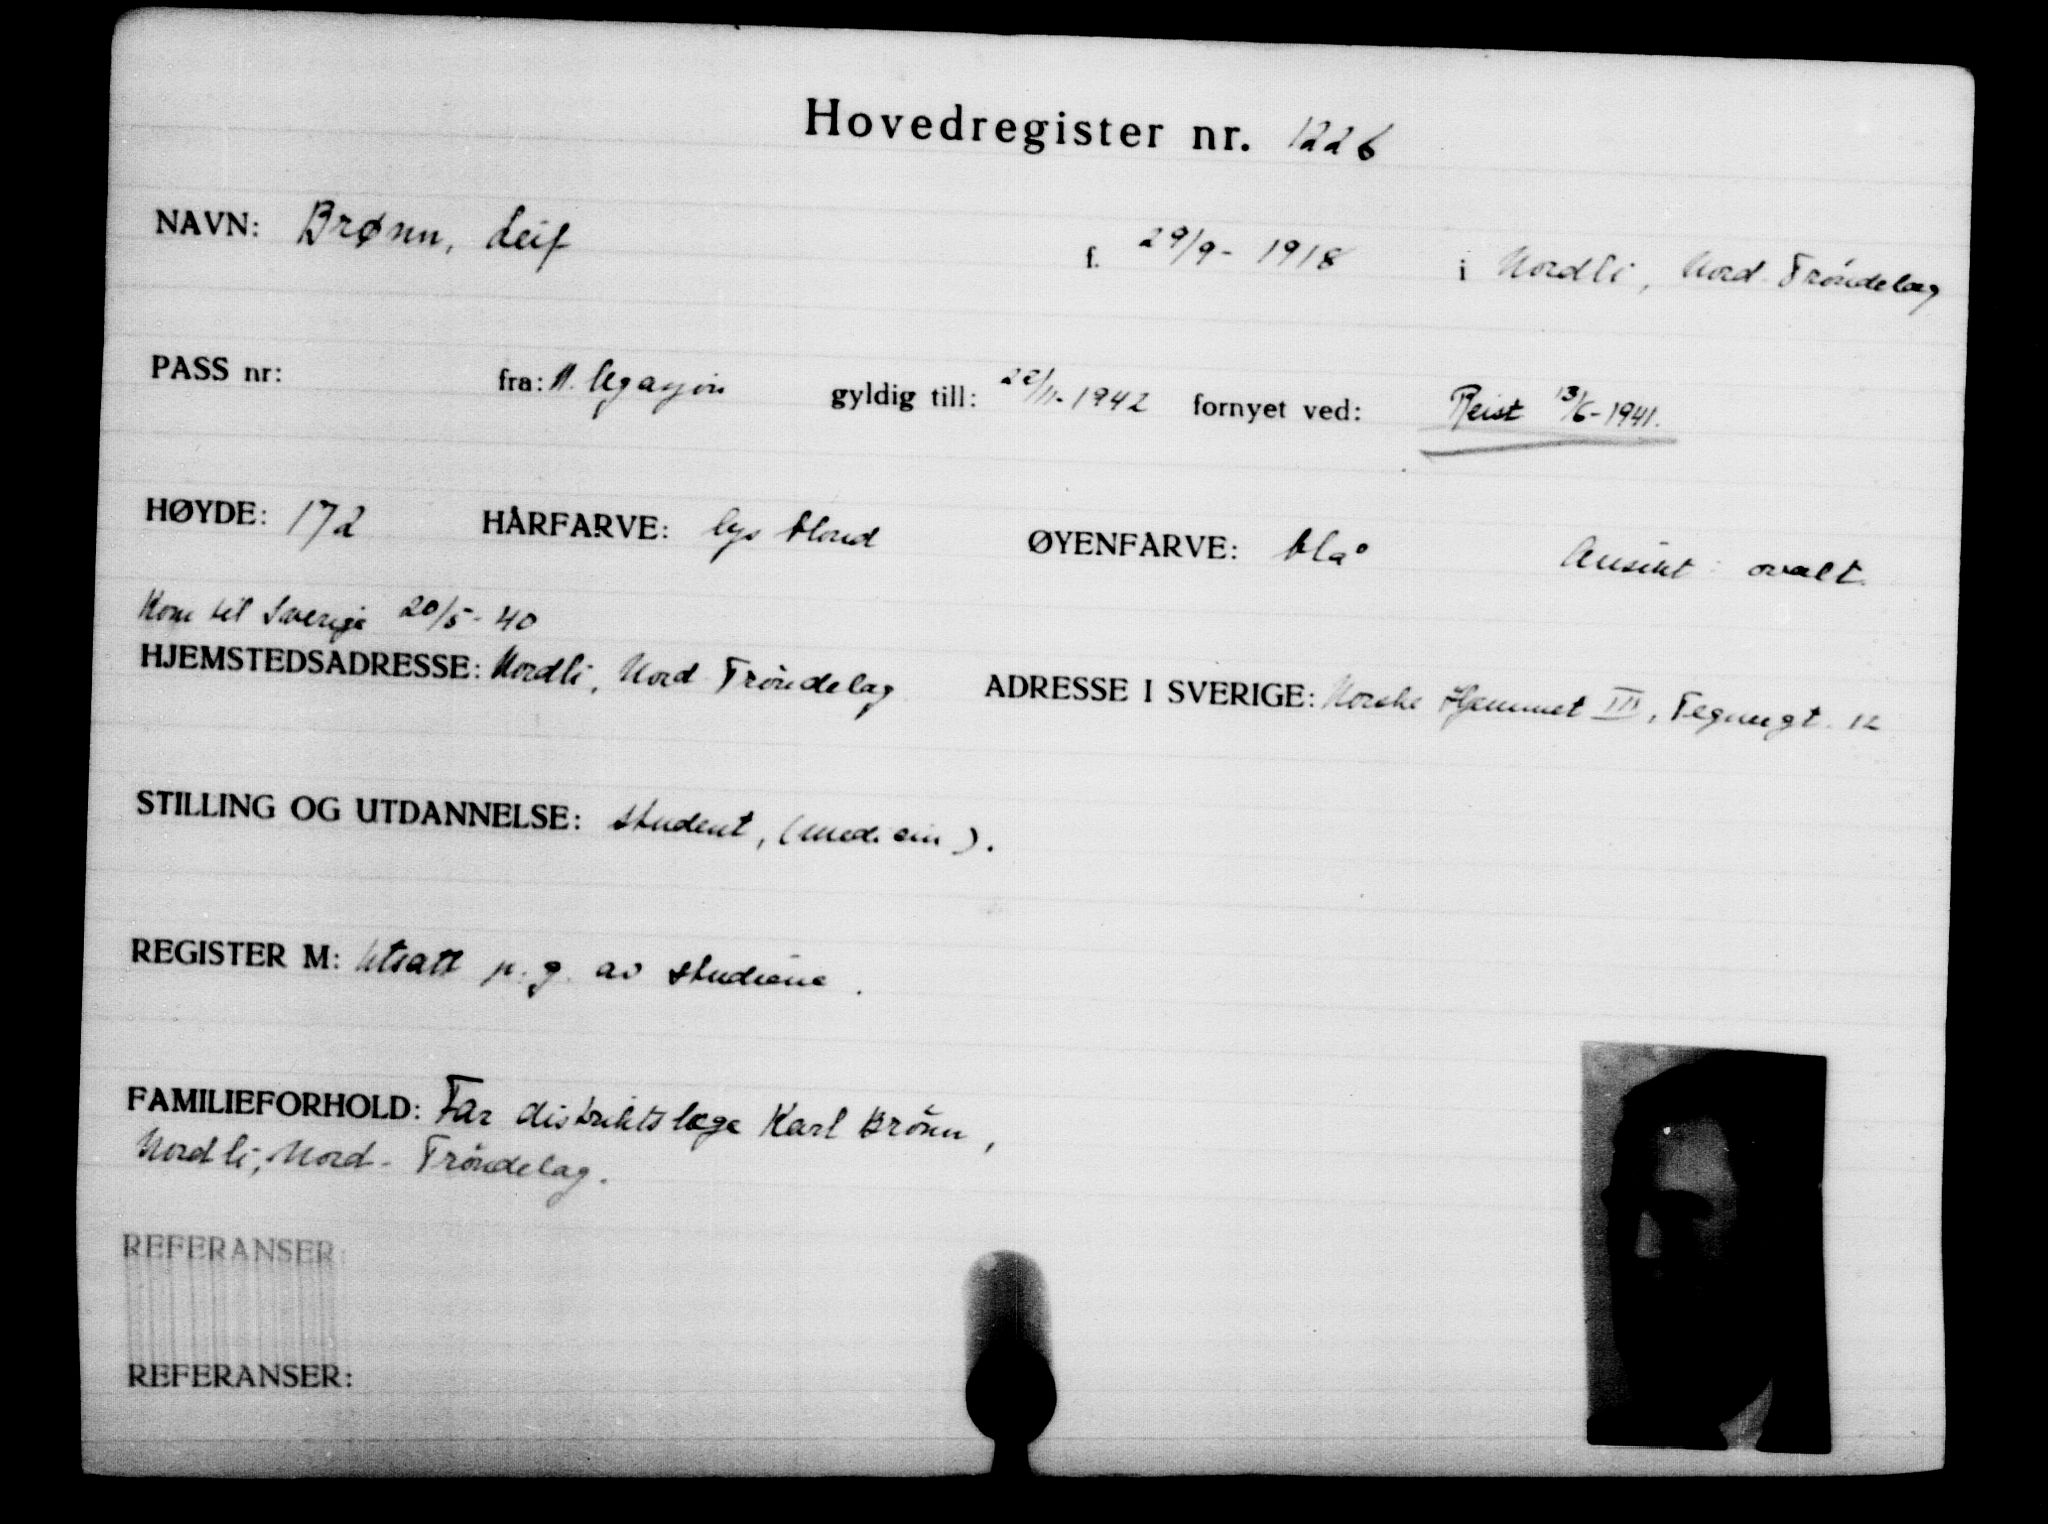 Hovedregister nr. 1226
NAVN: Brønn, Leif f. 29/9- 1918 i Nordli, Nord-Tröndelag
PASS nr: fra: N. legasjon gyldig till: 20/11-1942 fornyet ved: Reist 13/6-1941.
HØYDE: 172 HÅRFARVE: lys blond ØYENFARVE: blå Ansikt: ovalt.
Kom til Sverige 20/5-40
HJEMSTEDSADRESSE: Nordli, Nord-Tröndelag ADRESSE I SVERIGE: Norske Hjemmet III, Tegnergt. 12
STILLING OG UTDANNELSE: student, (medisin).
REGISTER M: Utsatt p.g. av studiene.
FAMILIEFORHOLD: Far distriktslege Karl Brönn,
Nordli, Nord-Tröndelag.
REFERANSER:
REFERANSER: